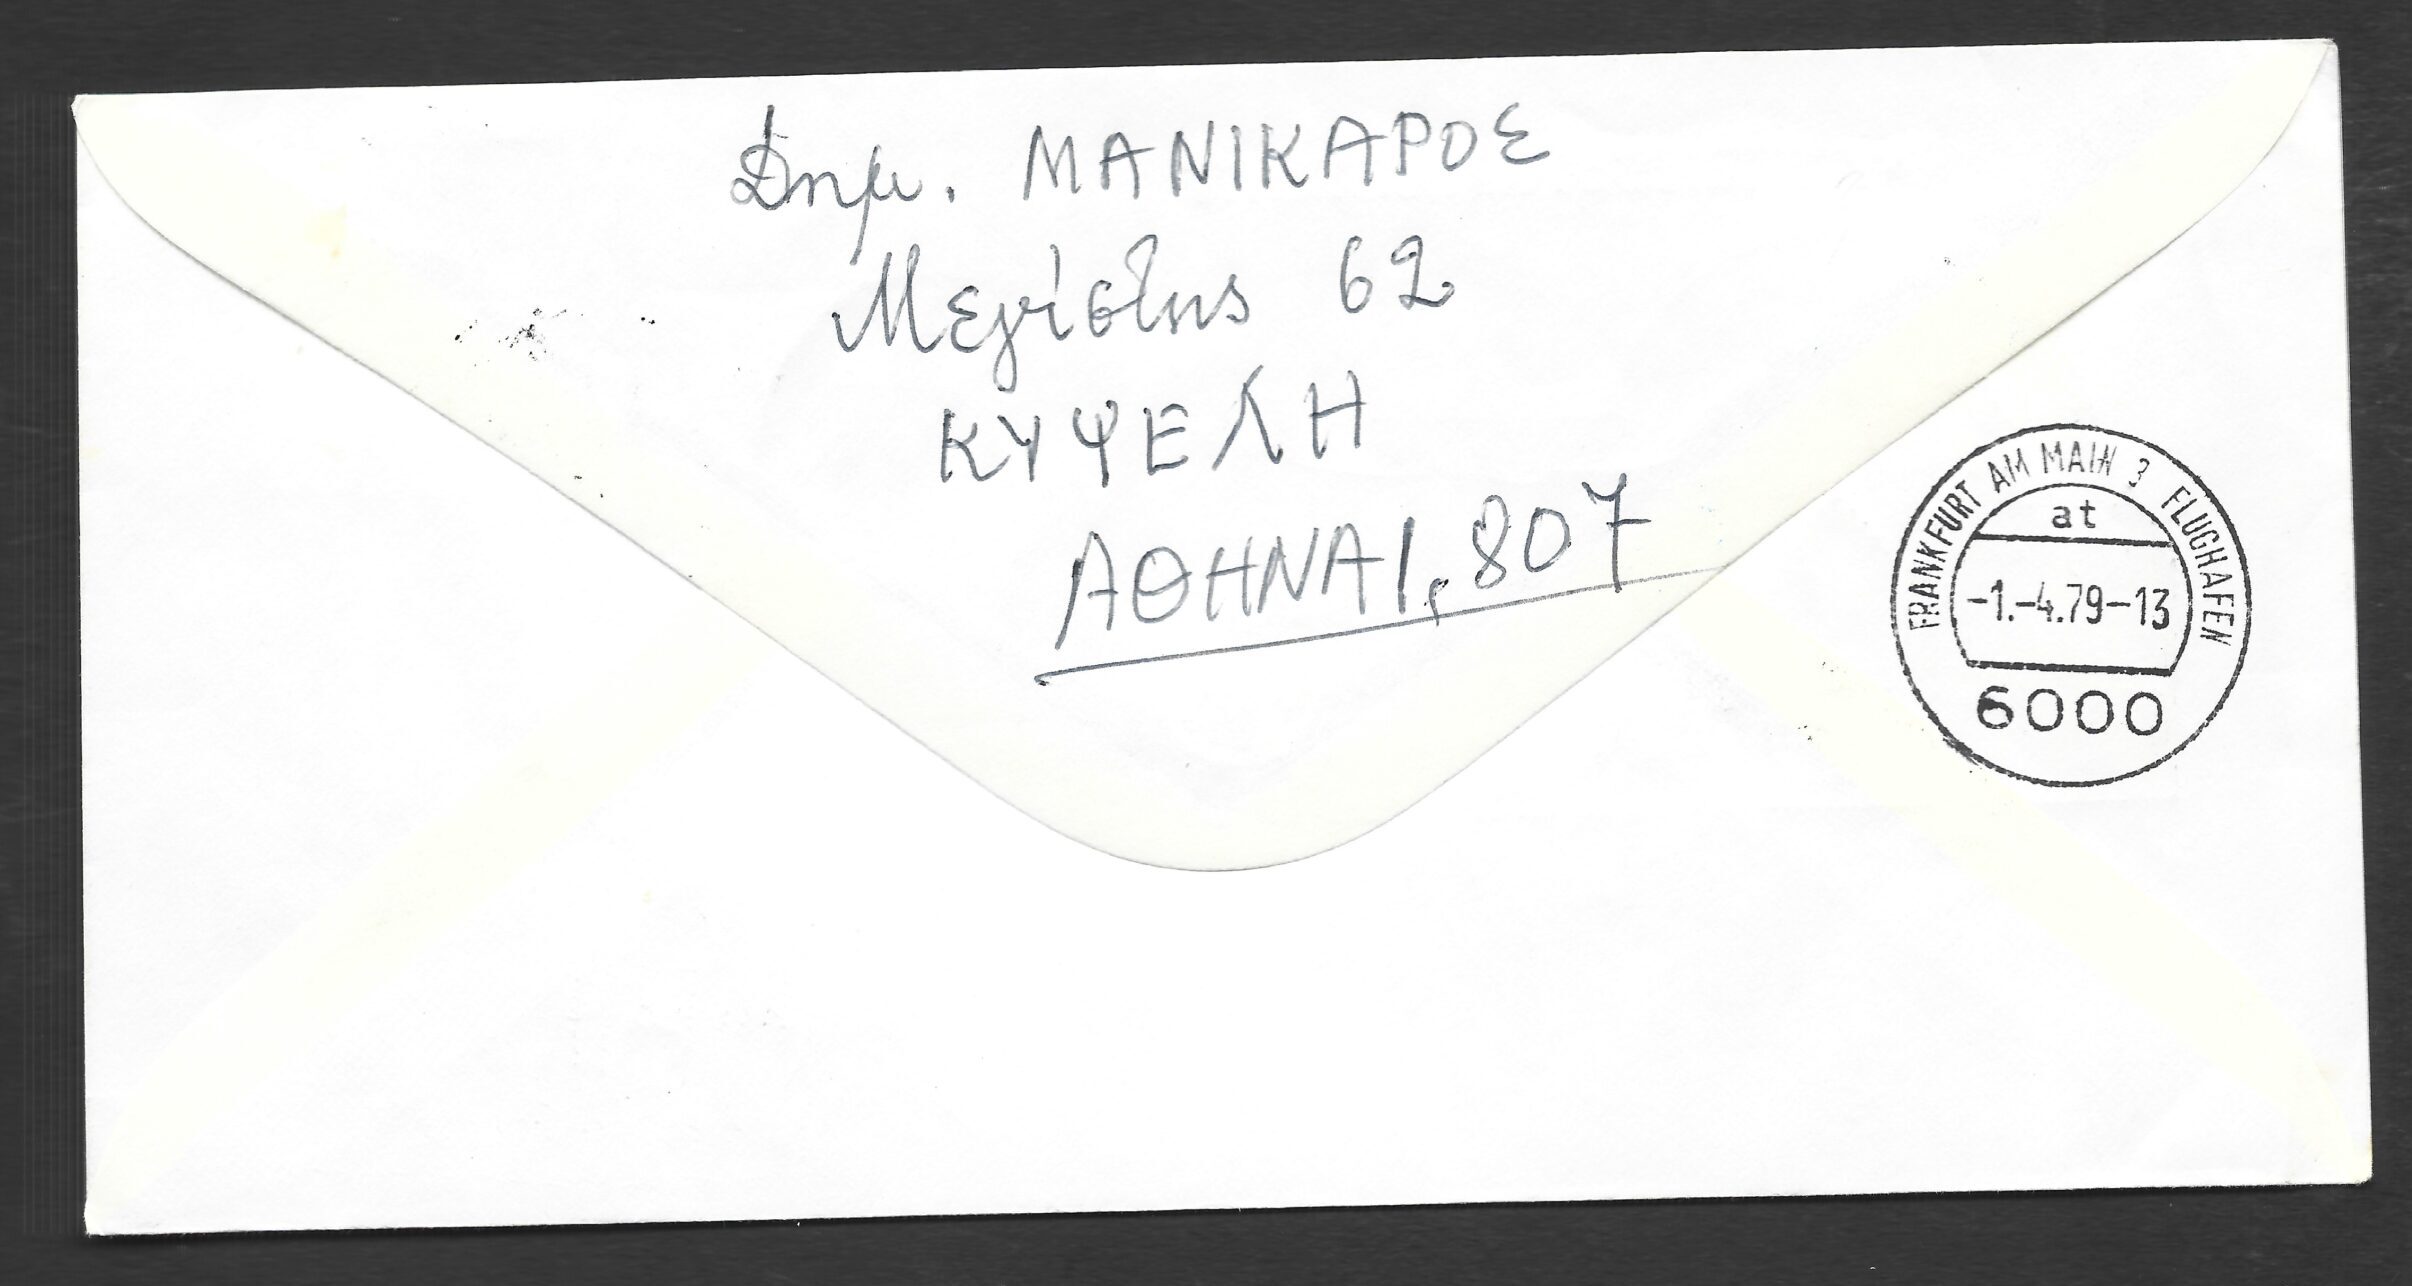 Δημ. ΜΑΝΙΚΑΡΟΣ
Μεγίστης 62
ΚΥΨΕΛΗ
ΑΘΗΝΑΙ, 807
FRANKFURT AM MAIN 3 FLUGHAFEN
at
-1.-4.79-13
6000